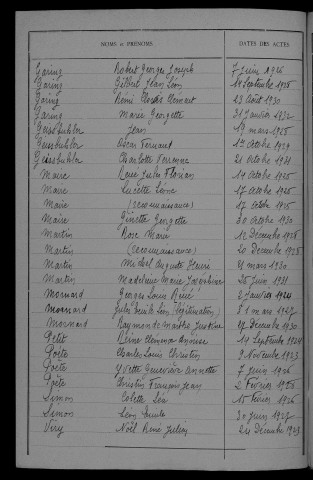 NOMS ET PRÉNOMS DATES DES ACTES
Garing Robert Georges Joseph 7 Juin 1926
Garing Gilbert Jean Léon 14 Septembre 1928
Garing Rémi Clément 23 Août 1930
Garing Marie Georgette 31 Janvier 1932
Geissbuhler Jean 19 mars 1928
Geissbuhler Oscar Fernand 1er Octobre 1929
Geissbuhler Charlotte 21 Octobre 1931
Maire René Jules Florian 14 Octobre 1925
Maire Lucette 17 Octobre 1926
Maire (reconnaissance) 17 Octobre 1925
Maire Ginette Georgette 30 Octobre 1930
Martin Rose Marie 12 Décembre 1928
Martin (reconnaissance) 20 Décembre 1928
Martin Michel Auguste Henri 4 mars 1930
Martin Madeleine Marie Joséphine 25 Juin 1931
Mornard Georges Louis René 2 Janvier 1924
Mornard Jules Émile Léon (légitimation) 31 mars 1927
Mornard Raymonde Marthe 17 Décembre 1930
Petit 14 Septembre 1924
Poête Charles Louis Christin 9 Novembre 1923
Poête Yvette Geneviève Annette 7 Juin 1926
Poête Christin François Jean 2 Février 1928
Simon Colette Léa 15 Février 1926
Simon Léon 30 Juin 1927
Viry Noël René Julien 24 Décembre 1923